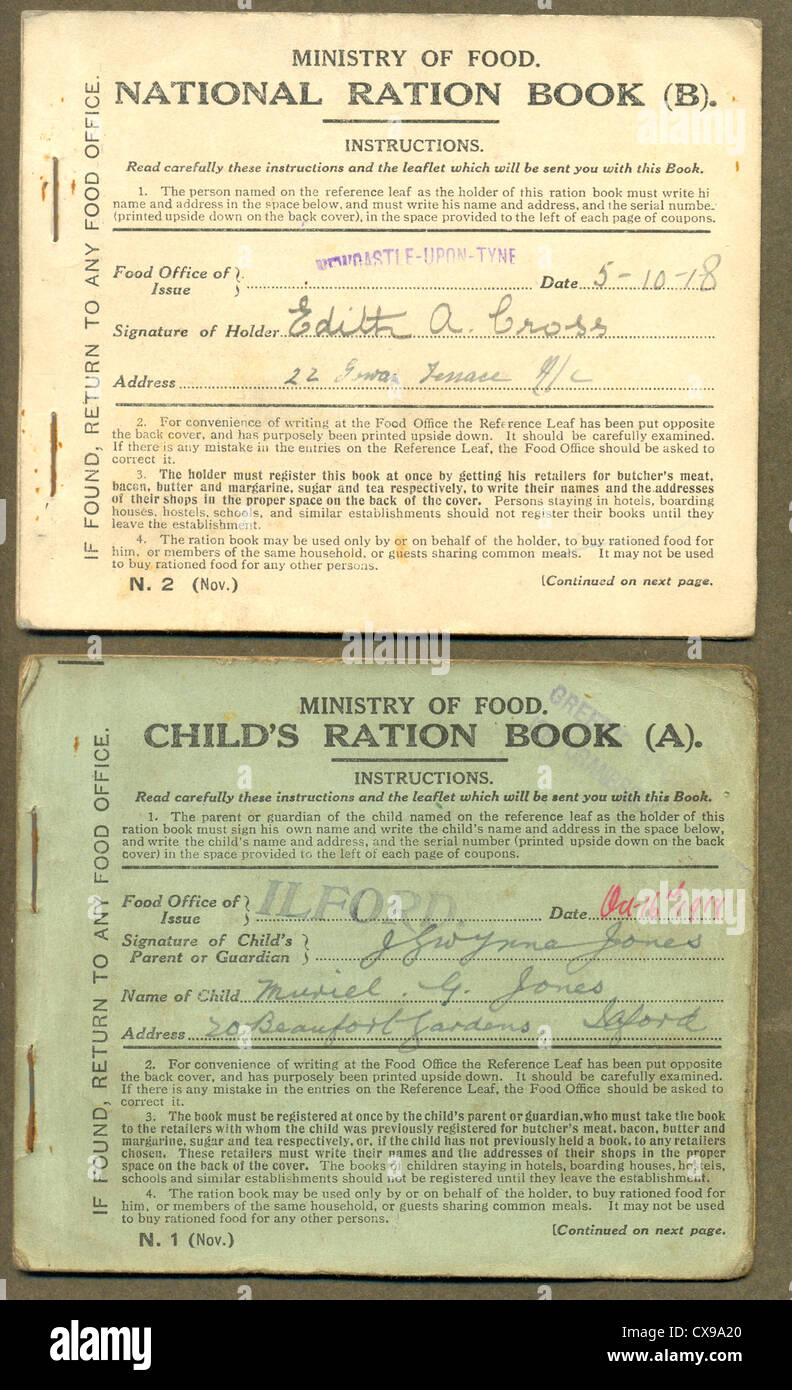 MINISTRY OF FOOD.
NATIONAL RATION BOOK (B).
INSTRUCTIONS.
Read carefully these instructions and the leaflet which will be sent you with this Book.
1. The person named on the reference leaf as the holder of this ration book must write hi
name and address in the space below, and must write his name and address, and the serial numbe
(printed upside down on the back cover), in the space provided to the left of each page of coupons.
NEWCASTLE-UPON-TYNE
Food Office of Issue } Date 5-10-18
Signature of Holder Edith A. Cross
Address 22 Terrace N/c
2. For convenience of writing at the Food Office the Reference Leaf has been put opposite
the back cover, and has purposely been printed upside down. It should be carefully examined.
If there is any mistake in the entries on the Reference Leaf, the Food Office should be asked to
correct it.
3. The holder must register this book at once by getting his retailers for butcher's meat,
bacon, butter and margarine, sugar and tea respectively, to write their names and the addresses
of their shops in the proper space on the back of the cover. Persons staying in hotels, boarding
houses, hostels, schools, and similar establishments should not register their books until they
leave the establishment.
4. The ration book may be used only by or on behalf of the holder, to buy rationed food for
him, or members of the same household, or guests sharing common meals. It may not be used
to buy rationed food for any other persons.
N. 2 (Nov.) [Continued on next page.
IF FOUND, RETURN TO ANY FOOD OFFICE.
MINISTRY OF FOOD.
CHILD'S RATION BOOK (A).
INSTRUCTIONS.
Read carefully these instructions and the leaflet which will be sent you with this Book.
1. The parent or guardian of the child named on the reference leaf as the holder of this
ration book must sign his own name and write the child's name and address in the space below,
and write the child's name and address, and the serial number (printed upside down on the back
cover) in the space provided to the left of each page of coupons.
Food Office of Issue } ILFORD Date Oct
Signature of Child's Parent or Guardian } J Gwynne Jones
Name of Child Muriel. G. Jones
Address 20 Beaufort Gardens Ilford
2. For convenience of writing at the Food Office the Reference Leaf has been put opposite
the back cover, and has purposely been printed upside down. It should be carefully examined.
If there is any mistake in the entries on the Reference Leaf, the Food Office should be asked to
correct it.
3. The book must be registered at once by the child's parent or guardian, who must take the book
to the retailers with whom the child was previously registered for butcher's meat, bacon, butter and
margarine, sugar and tea respectively, or, if the child has not previously held a book, to any retailers
chosen. These retailers must write their names and the addresses of their shops in the proper
space on the back of the cover. The books of children staying in hotels, boarding houses, hostels,
schools and similar establishments should not be registered until they leave the establishment.
4. The ration book may be used only by or on behalf of the holder, to buy rationed food for
him, or members of the same household, or guests sharing common meals. It may not be used
to buy rationed food for any other persons.
N. 1 (Nov.) [Continued on next page.
IF FOUND, RETURN TO ANY FOOD OFFICE.
alamy
Image ID: CX9A20
www.alamy.com